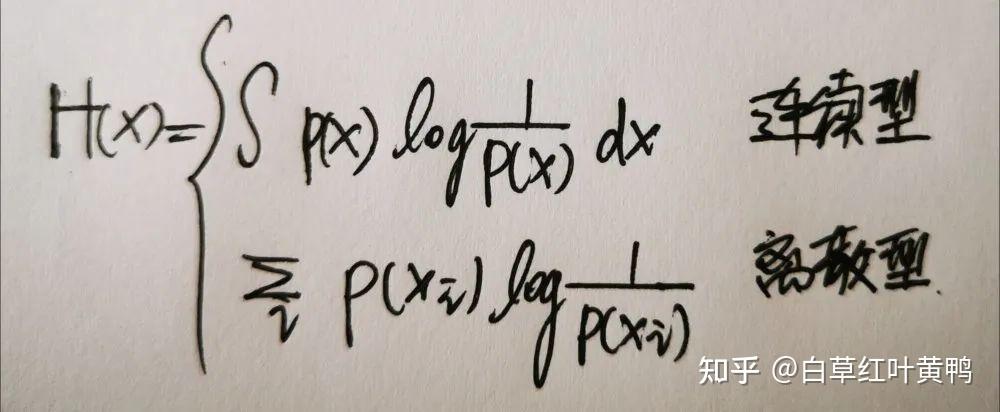 H(x)= { ∫ p(x) log 1/p(x) dx 连续型
∑i p(xi) log 1/p(xi) 离散型
知乎 @白草红叶黄鸭